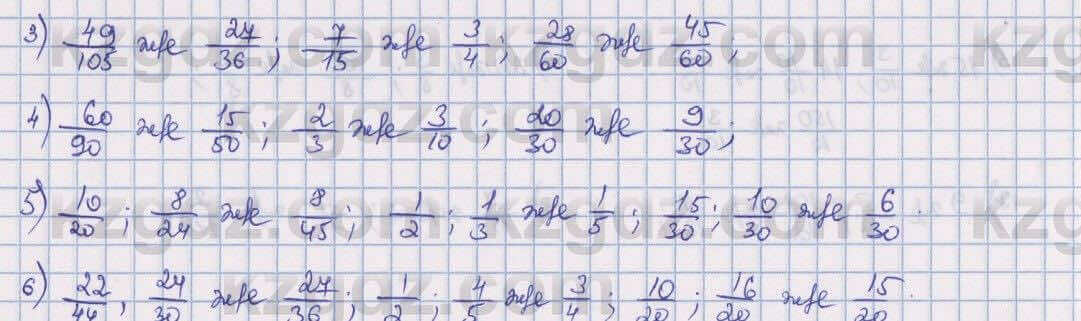 3) 49/105 және 27/36; 7/15 және 3/4; 28/60 және 45/60;
4) 60/90 және 15/50; 2/3 және 3/10; 20/30 және 9/30;
5) 10/20; 8/24 және 8/45; 1/2; 1/3 және 1/5; 15/30; 10/30 және 6/30.
6) 22/44, 24/30 және 27/36; 1/2; 4/5 және 3/4; 10/20; 16/20 және 15/20.